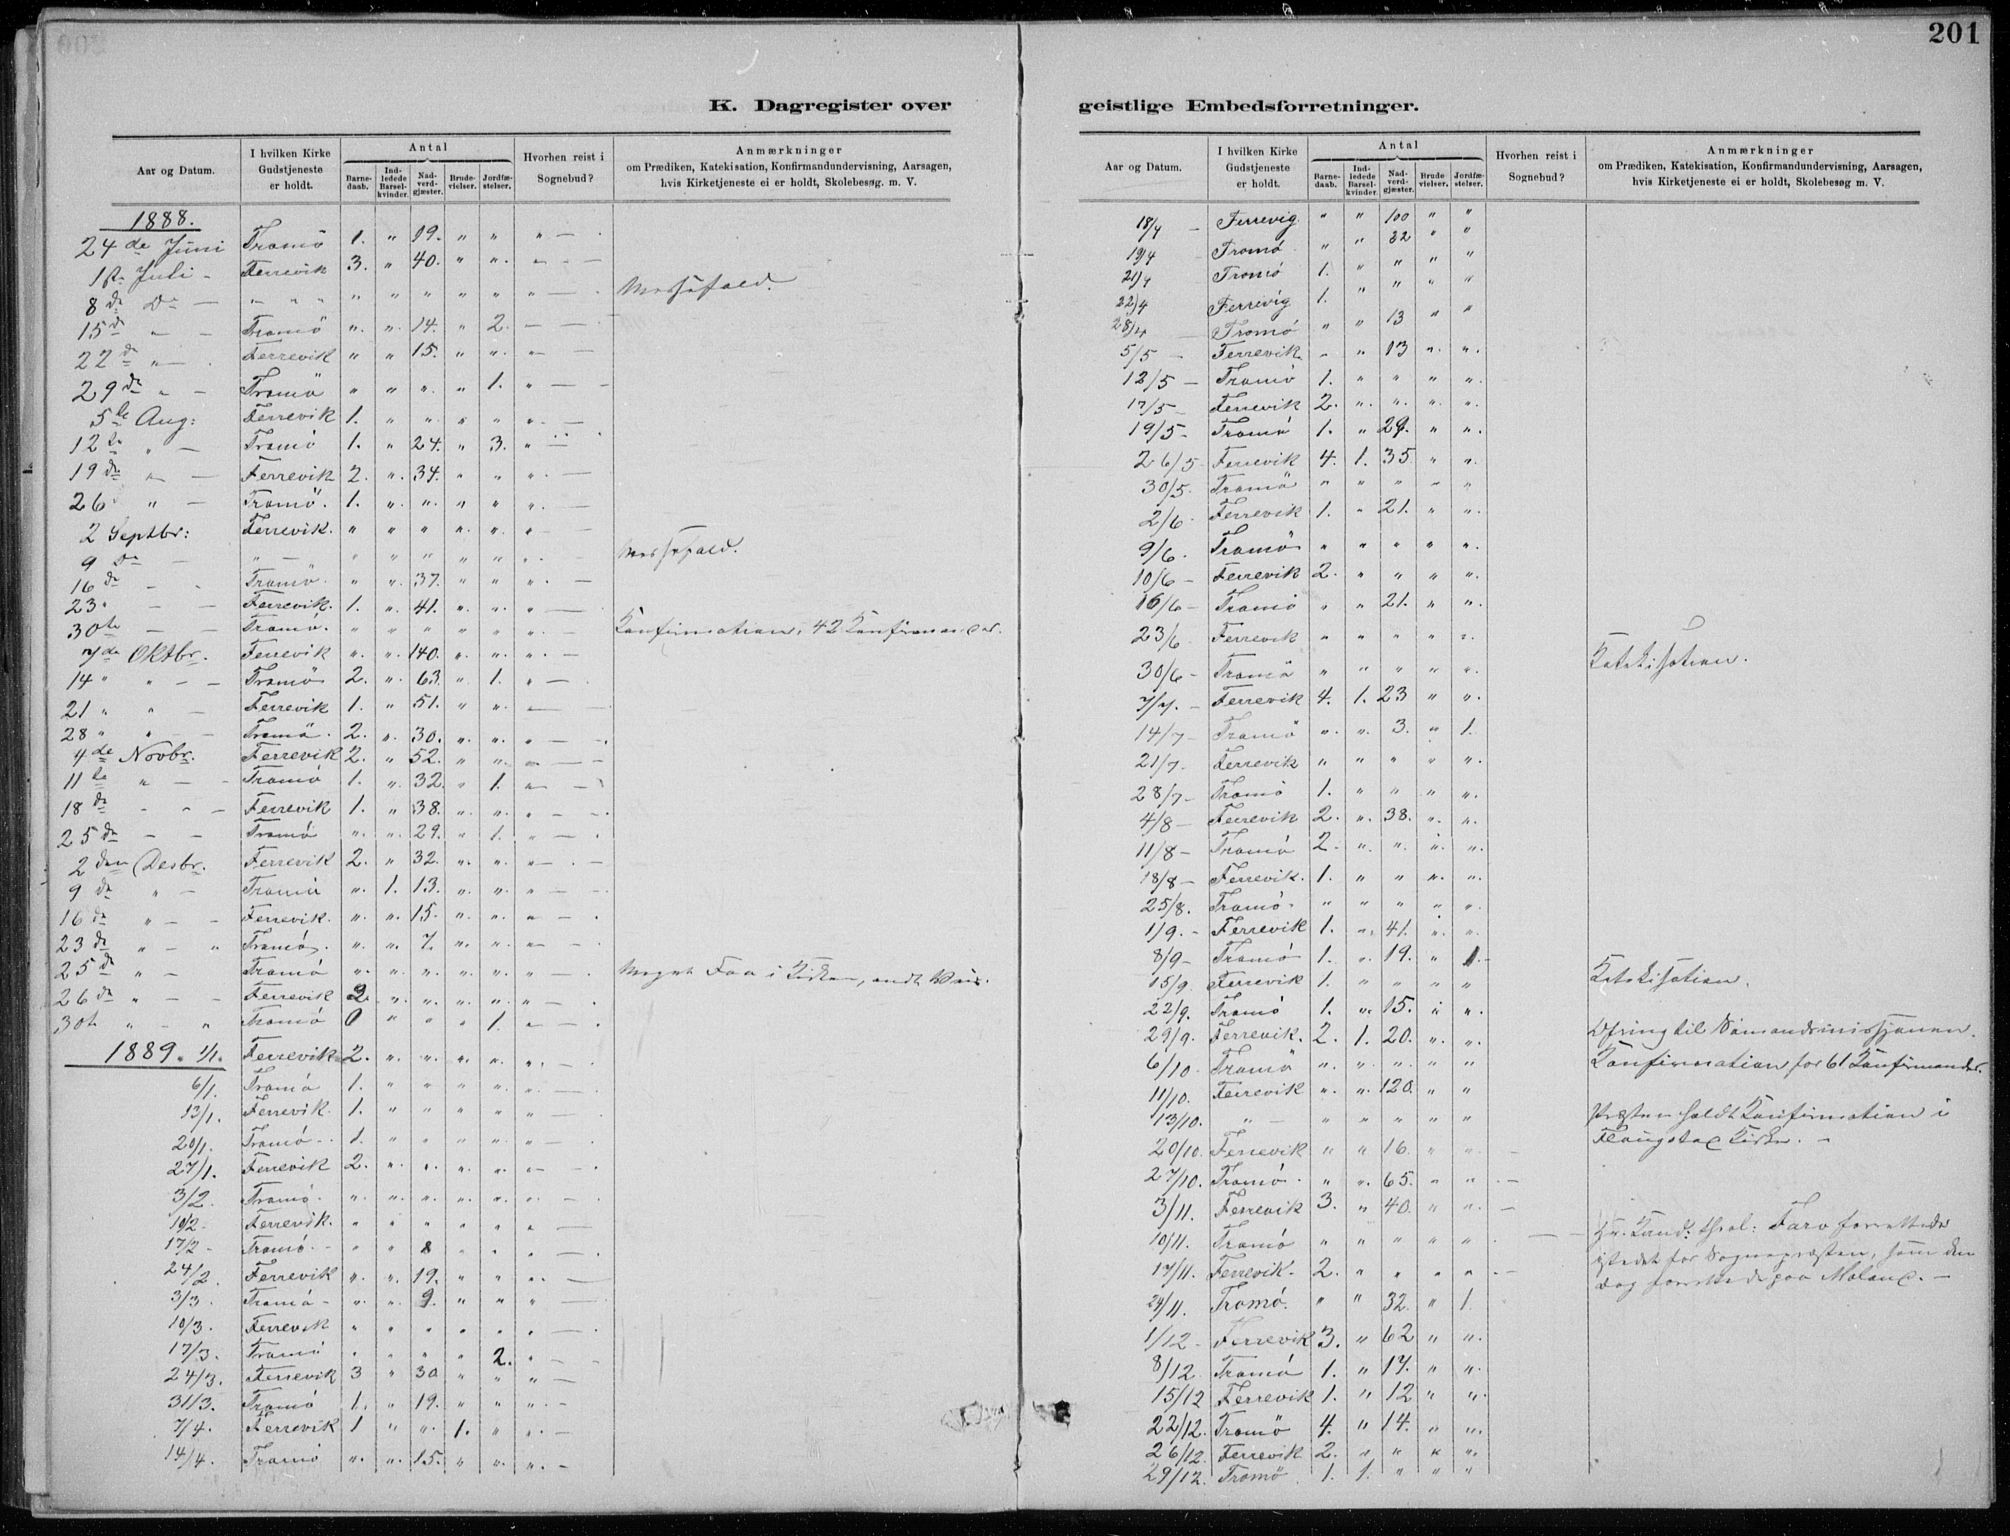 201
K. Dagregister over geistlige Embedsforretninger.
Aar og Datum. I hvilken Kirke Gudstjeneste er holdt. Antal Barnedaab. Indledede Barselkvinder. Nadverdgjæster. Brudevielser. Jordfæstelser. Hvorhen reist i Sognebud? Anmærkninger om Prædiken, Katekisation, Konfirmandundervisning, Aarsagen, hvis Kirketjeneste ei er holdt, Skolebesøg m. V.
1888.
24de Juni Tromö 1. " 19. " " " —
1ste Juli - Ferrevik 3. " 40. " ". " — —
8de Do — " " " " " " " " " — Messefald.
15de " — Tromö ". ". 14. " 2. — —
22de " — Ferrevik " " 15. " ". " —
29de " — Tromö " " ". " 1. " — —
5te Aug: Ferrevik 1. " " " " ". —
12te " — Tromö 1. " 24. " 3. "
19de " — Ferrevik 2. ". 34. " " ". —
26 " — Tromö. 1. ". ". " " ". —
2 Septbr: Ferrevik. " " " ". ". " —
9 de — " — " " " " " ". — Messefald.
16de - - Tromö. " ". 37. " " ". —
23" — — Ferrevik. 1. ". 41. ". ". " —
30te — — Tromö. " " " " " ". — Konfirmation, 42 Konfirmander.
7de Oktbr. Ferrevik ". ". 140. ". ". ". —
14 " " — — Tromö 2. ". 63. ". 1. ". —
21 " " — Ferrevik 1. " 51. ". ". —
28 " " — Tromö. 2. ". 30. ". ". " —
4de Novbr. Ferrevik 2. " 52. " ". " —
11te " — - Tromö 1. ". 32. " 1. " — -
18de - " — Ferrevik 1. " 38. ". ". " — -
25de — — Tromö ". ". 29. " 1. " —
2den Desbr. Ferrevik 2. " 32. ". ". " — . —
9de " — Tromö ". 1. 13. ". ". " —
16de " — - Ferrevik. ". ". 15. ". ". " —
23de " — " Tromö. ". ". 7. ". ". " —
25de " — Tromö ". ". ". ". ". " — Meget Faa i Kirken, ondt Veir.
26de " — — Ferrevik 2. ". ". ". ". " —
30te " — " Tromö 0 " " " 1. " —
1889. 1/1. Ferrevik 2. ". ". ". ". ". —
6/1. Tromö 1. " " " " " —
13/1. Ferrevik. 1. " " " " " —
20/1. Tromö - 1. " " " " " —
27/1. Ferrevik 2. ". ". ". ". " —
3/2. Tromö. ". ". ". ". ". " —
10/2. Ferrevik. " " " " " " —
17/2 - Tromö. — " " 8 " " " —
24/2. Ferrevik ". ". 19. " " ". —
3/3. Tromö - ". ". 9. " " " —
10/3. Ferrevik " " " " " " —
17/3. Tromö " " " " 2. " —
24/3. Ferrevik 3 " 30 " " " —
31/3. Tromö 1. " 19. " " ". -
7/4. Ferrevik 1 " ". 1. " ". —
14/4. Tromö ". ". 15. " ". ". —
18/4 - Ferrevig " " 100 " "
19/4 Tromö " " 32 " "
21/4 Tromö 1. " " " "
22/4 Ferrevig 1. " " " "
28/4 — Tromö " " 13 " "
5/5 — Ferrevik " " 13 ". ".
12/5 — Tromö 1. " " " ".
17/5 - Ferrevik 2. ". ". ". ".
19/5 - Tromö 1. " 29. " ".
26/5 - Ferrevik 4. 1. 35. " ".
30/5. Tromö " " " " "
2/6. Ferrevik 1. " 21. " ".
9/6. Tromö " " " " ".
10/6 - Ferrevik 2. " " " ".
16/6 - Tromö " " 21. " ".
23/6. Ferrevik " " " " ".
30/6 - Tromö " " " " ". Katekisation.
7/7. - Ferrevik 4. 1. 23 " ".
14/7 - Tromö ". ". 3. " 1.
21/7 - Ferrevik " " " " ".
28/7 - Tromö 1. " " " ".
4/8 — Ferrevik 2. ". 38. ". ".
11/8 - Tromö 2. ". ". ". ".
18/8 - Ferrevik. 1. " " ". ".
25/8. Tromö - " " " " ".
1/9. - Ferrevik 1. ". 41. ". ".
8/9 - Tromö 1. ". 19. " 1.
15/9. Ferrevik 1. " " " " Katekisation.
22/9. Tromö 1. ". 15. " ".
29/9. Ferrevik. 2. 1. 20. ". ". Ofring til Sömandsmissjonen.
6/10. Tromö ". ". ". " ". Konfirmation for 61 Konfirmander.
11/10. Ferrevik ". ". 120. " "
13/10. " — " " " " " Præsten holdt Konfirmation i
Flaugstad Kirke. —
20/10. Ferrevik " " 16. " ". —
27/10. Tromö. " ". 65. " ". —
3/11. Ferrevik 3. " 40. " ". —
10/11. Tromö " " " " " — — Hr. Kand: theol: Farv forrettede
istedet for Sognepræsten, som den
dag forrettede paa Moland. —
17/11. Ferrevik. 2. " " " ". —
24/11. Tromö. " " 32. " 1.
1/12 - Ferrevik 3. " 62 " ".
8/12. Tromö 1. " 17. " ".
15/12 Ferrevik 1. " 12 " ".
22/12. Tromö 4. " 14. " ".
26/12. Ferrevik 2. " " " ".
29/12. Tromö 1. 1. " " "